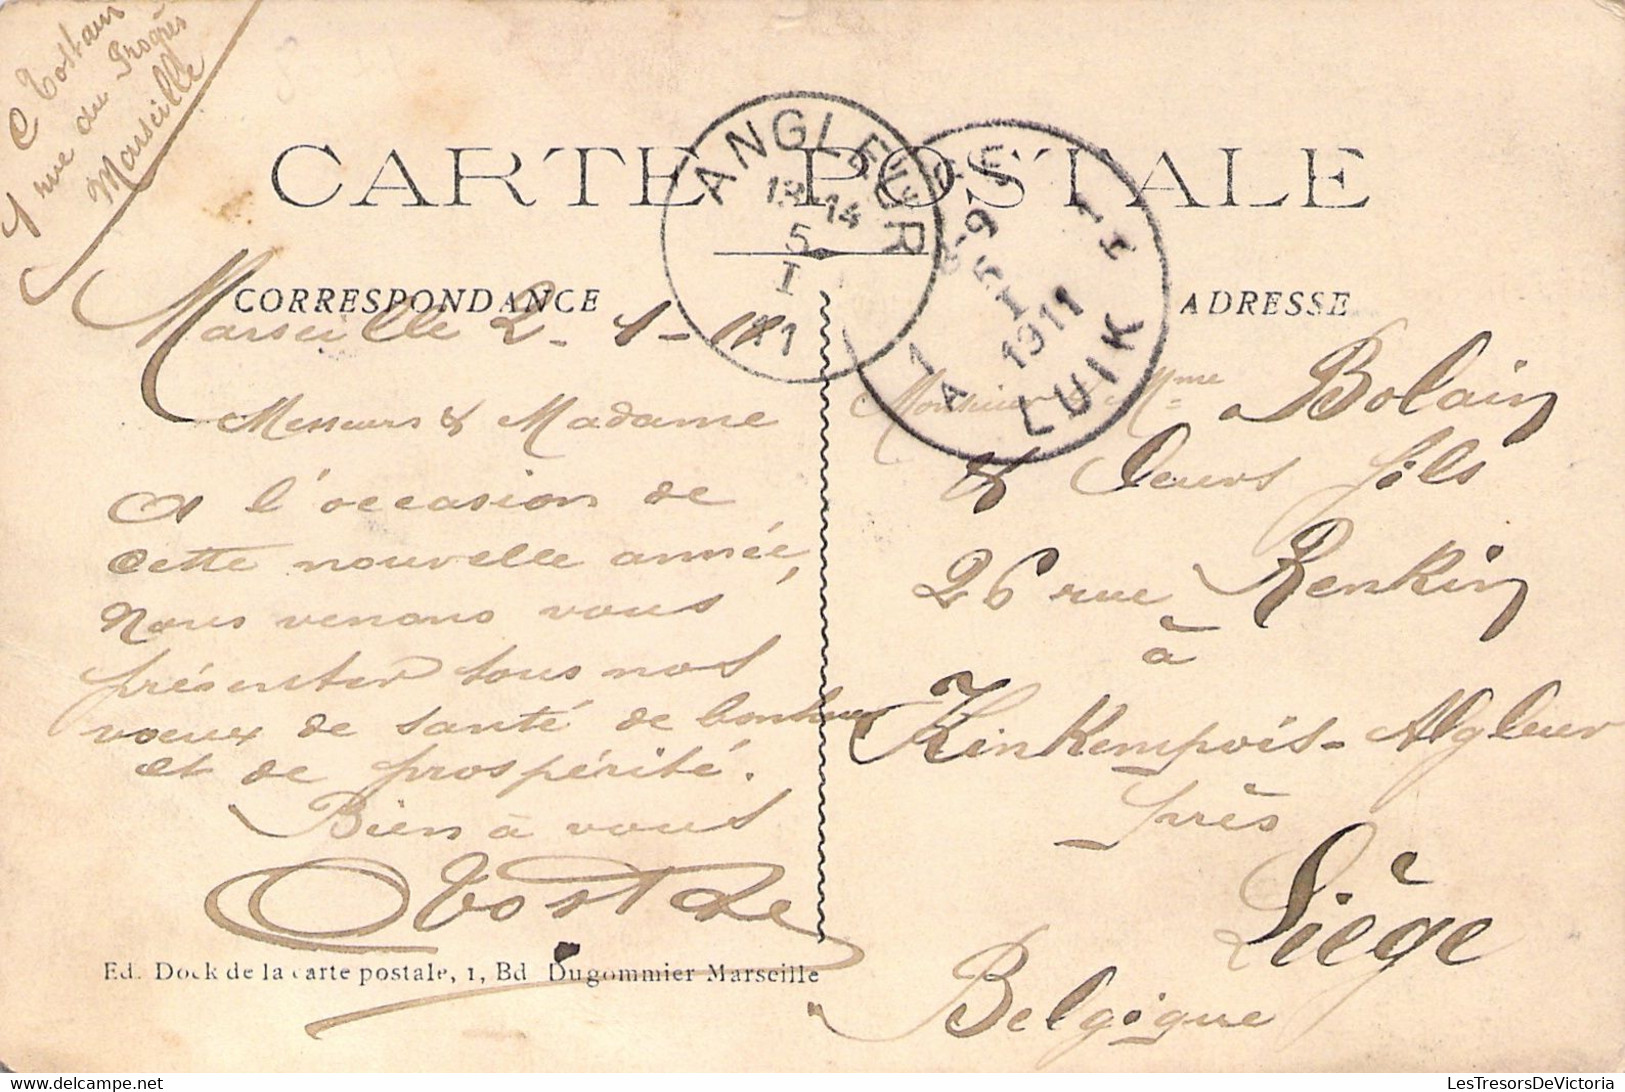 C Tostain
1 rue du Progrès
Marseille
CARTE POSTALE
ANGLEUR
13-14
5
I
11
8-9
5
I
1911
LUIK
1 A
CORRESPONDANCE
ADRESSE
Marseille 2-1-11
Messieurs & Madame
A l'occasion de
cette nouvelle année,
nous venons vous
présenter tous nos
voeux de santé de bonheur
et de prospérité.
Bien à vous
Monsieur & Mme Bolain
& Leurs fils
26 rue Renkin
à
Kinkempois-Algleur
près
Liège
Belgique
Ed. Dock de la carte postale, 1, Bd Dugommier Marseille
LesTresorsDeVictoria